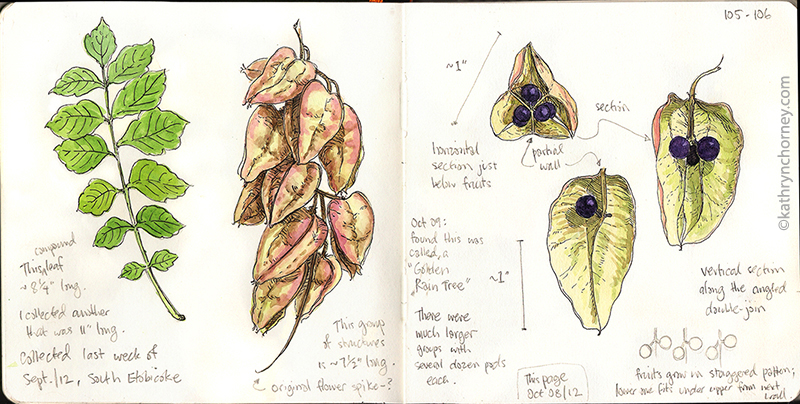 compound
This leaf
~ 8¼" long.
I collected another
that was 11" long.
Collected last week of
Sept./12, South Etobicoke
This group
of structures
is ~7½" long.
original flower spike-?
105 - 106
~1"
section
horizontal
section just
below fruits
partial
wall
Oct 09:
found this was
called, a
"Golden
Rain Tree"
~1"
There were
much larger
groups with
several dozen pods
each.
This page
Oct 08/12
vertical section
along the angled
double-join
fruits grow in staggered pattern;
lower one fits under upper from next
wall
©kathrynchorney.com